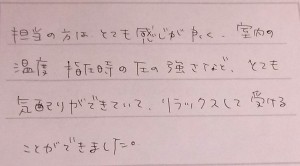 担当の方は とても感じが良く、室内の
温度 指圧時の圧の強さなど、とても
気配りができていて、リラックスして 受ける
ことができました。